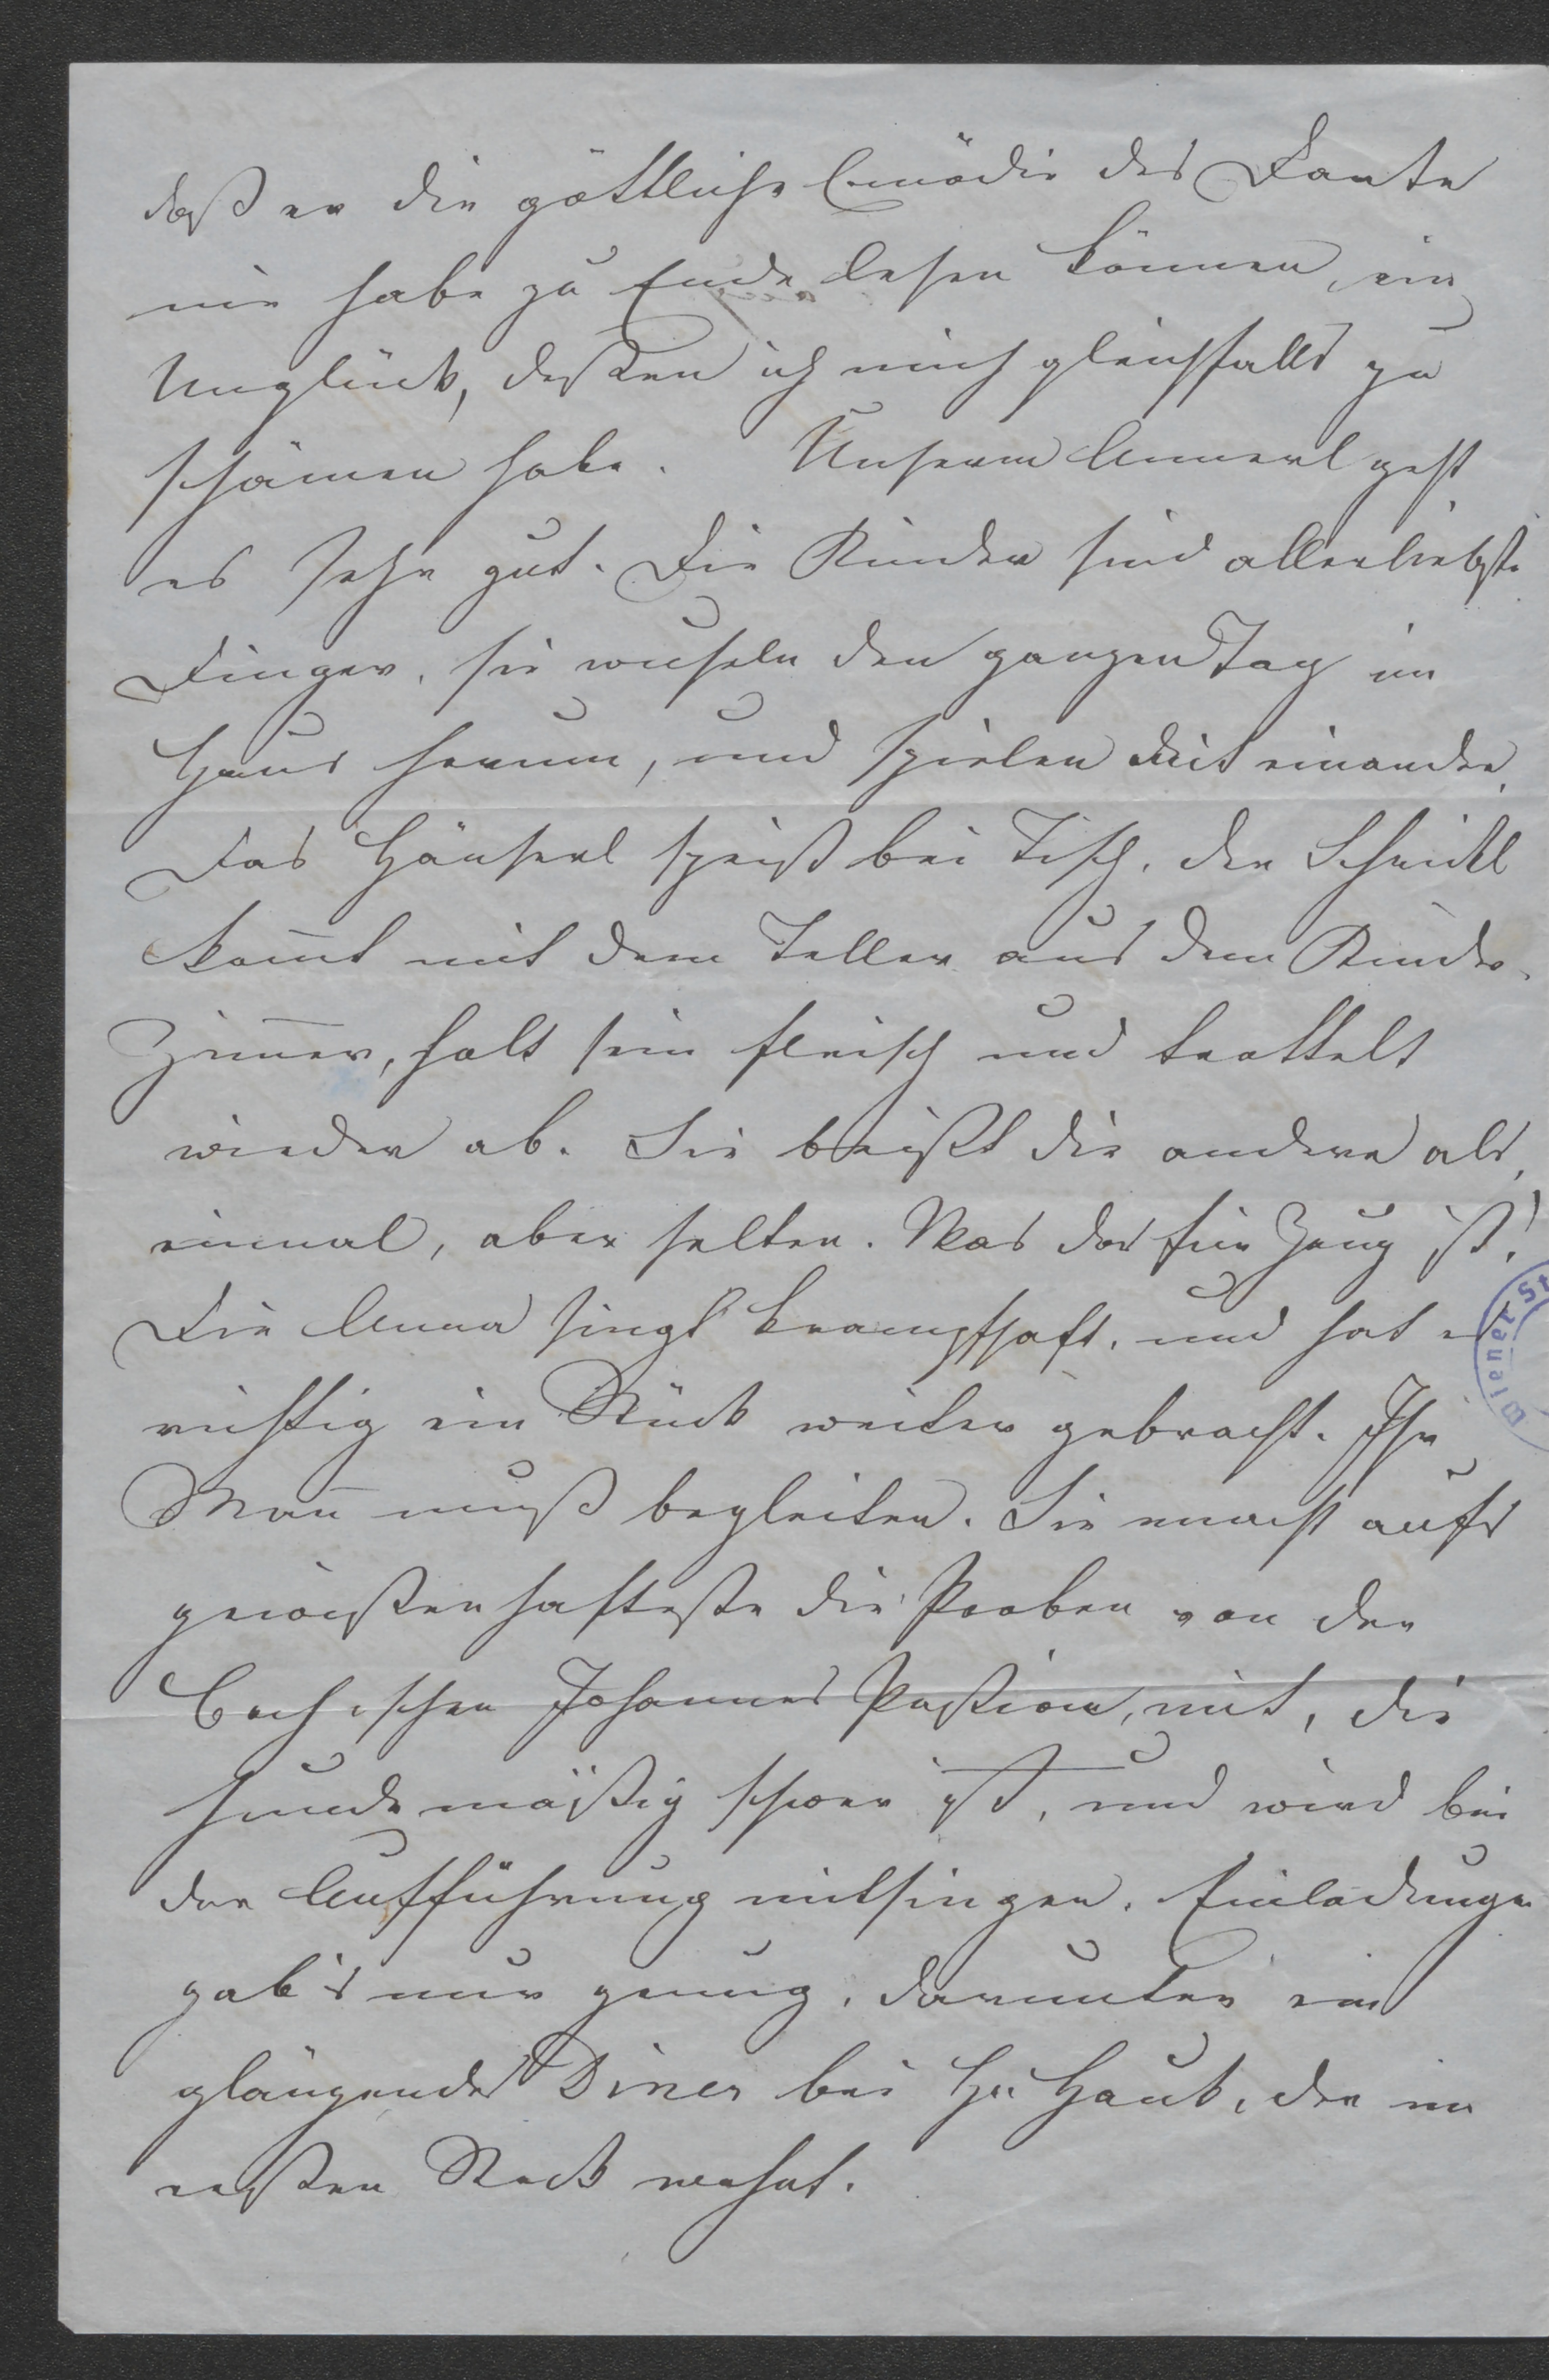 daß er die göttliche Comödie des Dante
nie habe zu Ende lesen können, ein
Unglück, deßen ich mich gleichfalls zu
schämen habe. Unserm Annerl geht
es sehr gut. Die Kinder sind allerliebste
Dinger, sie wuseln den ganzen Tag im
Haus herum, und spielen mit einander.
Das Hänserl speist bei Tisch, der
kom̄t mit dem Teller aus dem Kinder-
zim̄er, holt sein Fleisch und trottelt
wieder ab. Sie beißt die andere als
einmal, aber selten. Was das für Zeug ist!
Die Anna singt krampfhaft, und hat es
richtig ein Stück weiter gebracht. Ihr
Man̄ muß begleiten. Sie macht aufs
gewißenhafteste die Proben von der
Bachischen Johannes Paßion, mit, die
hundemäßig schwer ist, und wird bei
der Aufführung mitsingen. Einladungen
gab's nur genug, darunter ein
glänzendes Diner bei H: Hauk, der im
ersten Stock wohnt.
Wiener St